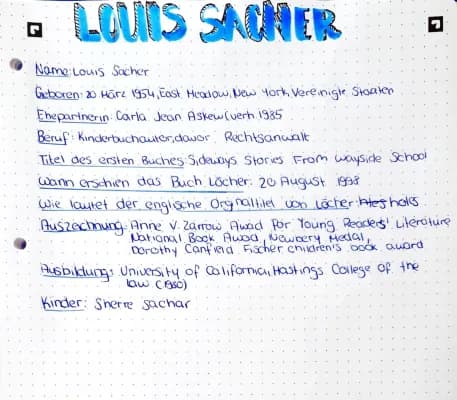 LOUIS SACHER
Name: Louis Sacher
Geboren: 20 März 1954, East Meadow, New York, Vereinigte Staaten
Ehepartnerin: Carla Jean Askew (verh. 1985
Beruf: Kinderbuchautor, davor Rechtsanwalt
Titel des ersten Buches: Sideways Stories From Wayside School
Wann erschien das Buch Löcher: 20 August 1998
Wie lautet der englische Orginaltitel von Löcher holes
Auszeichnung: Anne V. Zarrow Awad for Young Readers' Literature
National Book Awad, Newbery Medal,
Dorothy Canfield Fischer children's book award
Ausbildung: University of California, Hastings College of the
law (1980)
Kinder: Sherre Sachar